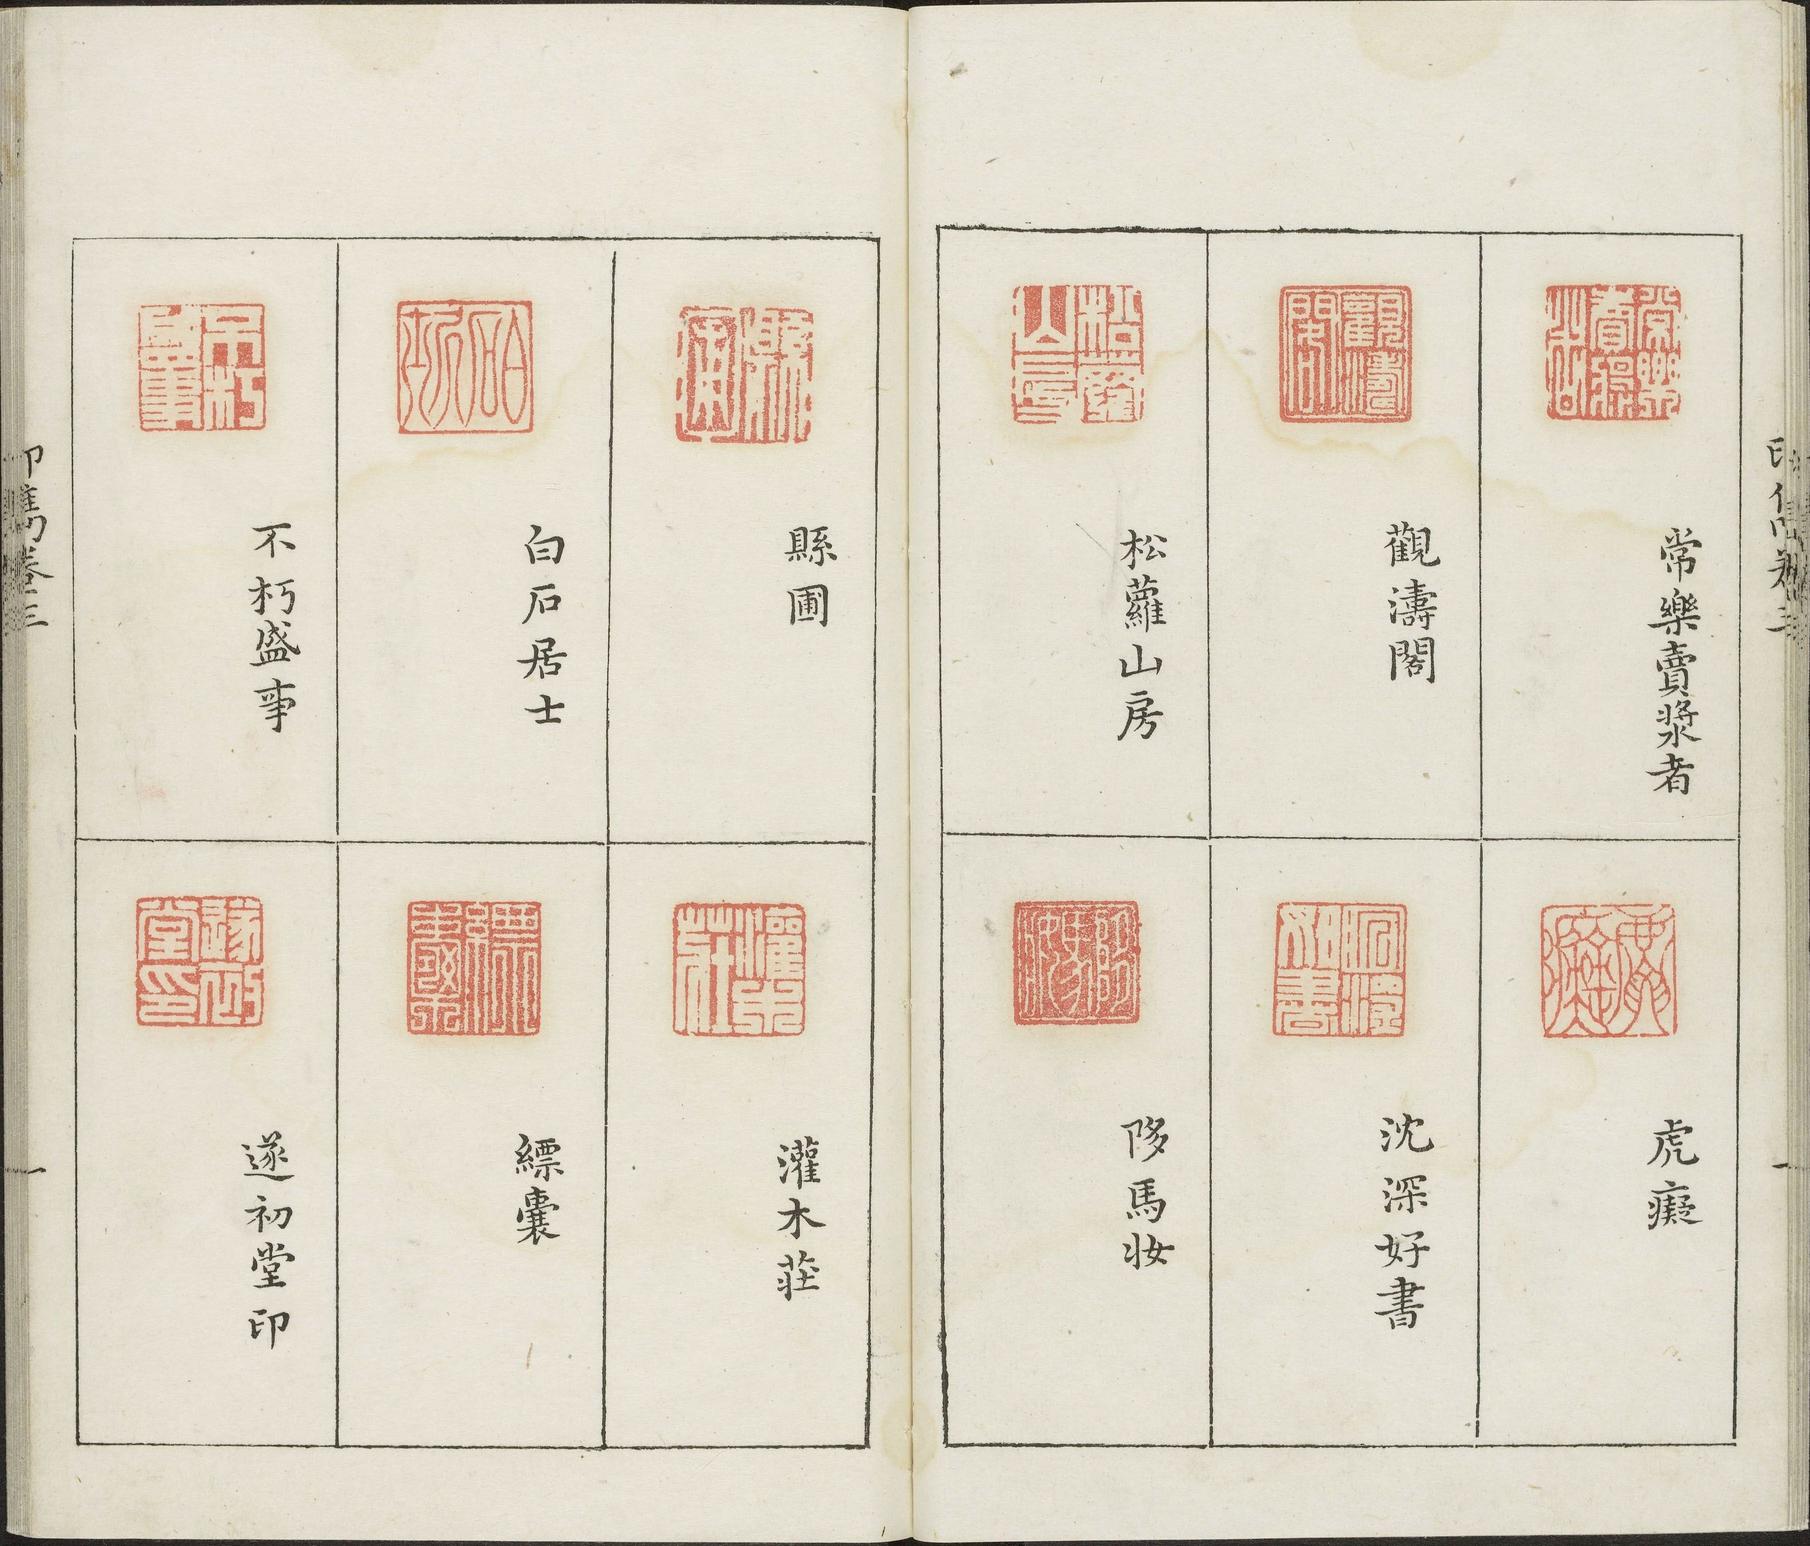 常樂賣漿者
觀濤閣
松蘿山房
虎癡
沈深好書
陊馬妝
縣圃
白石居士
不朽盛事
灌木莊
縹囊
遂初堂印
印雋卷三
一